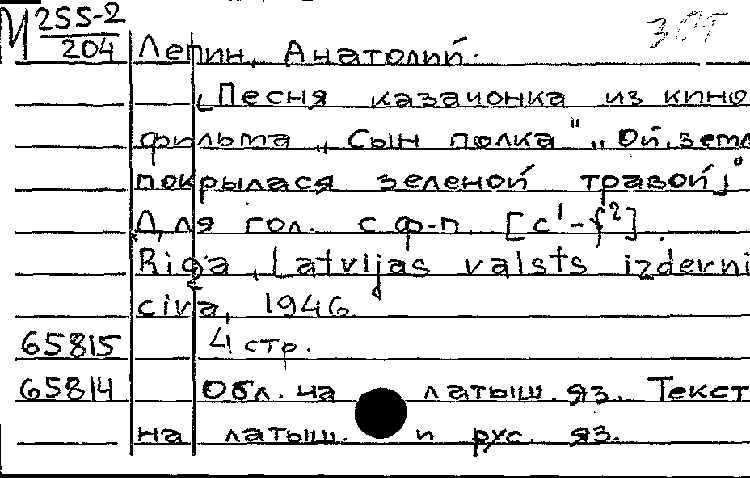 М 255-2
204
Лепин, Анатолий.
Песня казачонка из кино
фильма „Сын полка" „Ой, земл
покрылася зеленой травой"
Для гол. с ф-п. [c¹-f²]
Riga, Latvijas valsts izdevni
civa, 1946.
65815 4 стр.
65814 Обл. на латыш. яз. Текст
на латыш. и рус. яз.